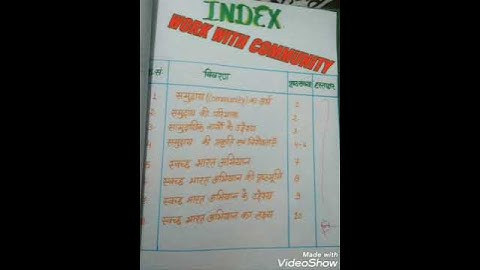 INDEX
WORK WITH COMMUNITY
क्र.सं. विवरण पृष्ठसंख्या हस्ताक्षर
1. समुदाय (Community) का अर्थ 1
2. समुदाय की परिभाषा 2
3. सामुदायिक कार्यों के उद्देश्य 3
4. समुदाय की प्रकृति एवं विशेषताएँ 4-6
5. स्वच्छ भारत अभियान 7
स्वच्छ भारत अभियान की पृष्ठभूमि 8
स्वच्छ भारत अभियान के उद्देश्य 9
स्वच्छ भारत अभियान का लक्ष्य 10
Made with
VideoShow